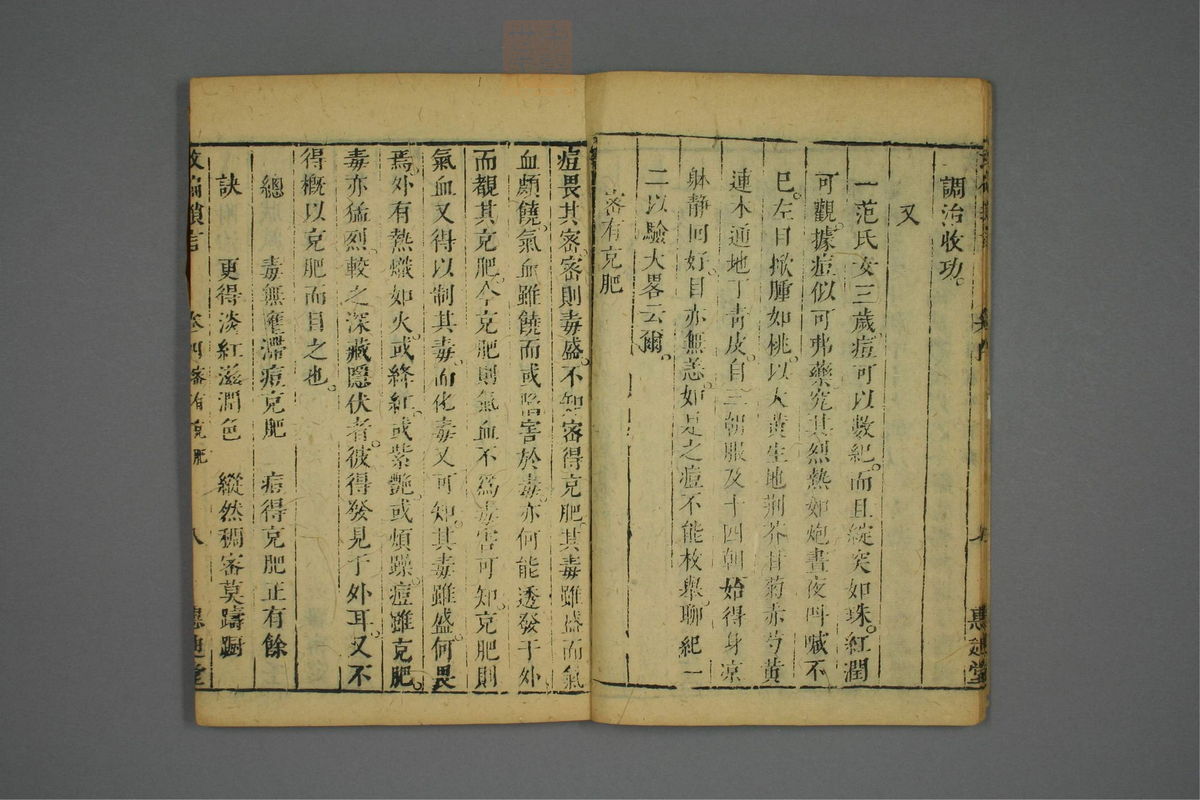 調治收功。
又
一范氏女三歲。痘可以數紀。而且綻突如珠。紅潤
可觀。據痘似可弗藥。究其烈熱如炮。晝夜呌喊不
已。左目掀腫如桃。以大黃生地荆芥甘菊赤芍黃
連木通地丁靑皮。自三朝服及十四朝。始得身凉
躰静。回好目亦無恙。如是之痘。不能枚舉。聊紀一
二以驗大畧云爾。
密有克肥
痘畏其密。密則毒盛。不知密得克肥。其毒雖盛而氣
血頗饒。氣血雖饒而或陷害於毒。亦何能透發于外
而覩其克肥。今克肥則氣血不爲毒害可知。克肥則
氣血又得以制其毒。而化毒又可知。其毒雖盛。何畏
焉。外有熱熾如火。或絳紅。或紫艷。或煩躁。痘雖克肥。
毒亦猛烈。較之深藏隱伏者。彼得發見于外耳。又不
得概以克肥而目之也。
總 毒無壅滯痘克肥 痘得克肥正有餘
訣 更得淡紅滋潤色 縱然稠密莫躊蹰
救偏瑣言 卷四密有克肥 八 惠迪堂